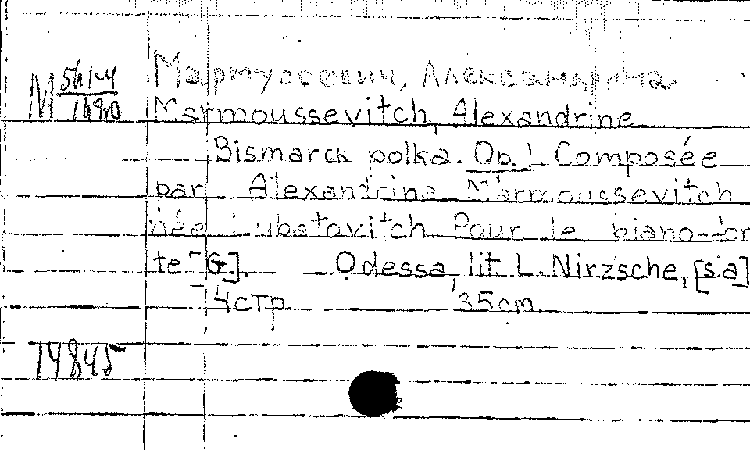 Мармуссевич, Александрина
Marmoussevitch, Alexandrine
Bismarck polka. Op. 1. Composée
par Alexandrine Marmoussevitch
née Lubstavitch Pour le piano-for
te [G.]. Odessa, lit L. Nirzsche, [s.a]
4 стр 35 cm
14845